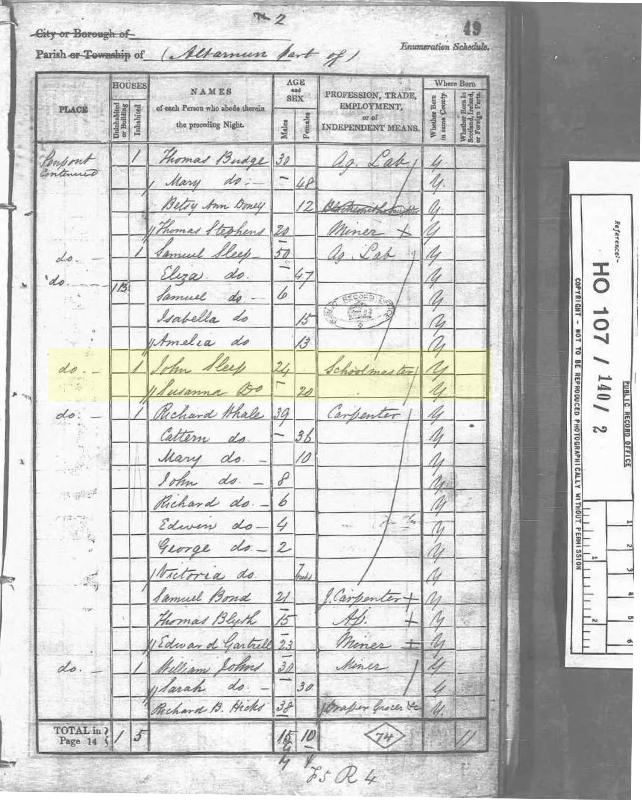 2
49
City or Borough of
Parish or Township of (Altarnun Part of)
Enumeration Schedule.
PLACE
HOUSES
Uninhabited or Building
Inhabited
NAMES
of each Person who abode therein
the preceding Night.
AGE
and
SEX
Males
Females
PROFESSION, TRADE,
EMPLOYMENT,
or of
INDEPENDENT MEANS.
Where Born
Whether Born in same County
Whether Born in Scotland, Ireland, or Foreign Parts.
Penpont 1 Thomas Budge 30 Ag. Lab Y
Continued
Mary do. – 48 Y
Betsy Ann Doney 12 Y
Thomas Stephens 20 Miner + Y
do. 1 Samuel Sleep 50 Ag. Lab Y
do. Eliza do. 47 Y
1B. Samuel do – 6 Y
Isabella do 15 Y
Amelia do 13 Y
do. 1 John Sleep 24 Schoolmaster Y
Susanna Do – 20 Y
do. 1 Richard Whale 39 Carpenter Y
Cattern do. – 36 Y
Mary do. – 10 Y
John do. – 8 Y
Richard do. – 6 Y
Edwin do – 4 Y
George do. – 2 Y
Victoria do. 7 Y
Samuel Bond 21 J. Carpenter + Y
Thomas Blyth 15 Ap. + Y
Edward Gartrell 23 Miner + Y
do. 1 William Johns 30 Miner Y
Sarah do. – 30 Y
Richard B. Hicks 38 Draper Grocer &c Y
TOTAL in
Page 14
1 5 15 10 74 11
F5 R 4
PUBLIC RECORD OFFICE
Reference:-
HO 107 / 140/2
PUBLIC RECORD OFFICE
COPYRIGHT - NOT TO BE REPRODUCED PHOTOGRAPHICALLY WITHOUT PERMISSION
1
2
1
2
3
4
5
6